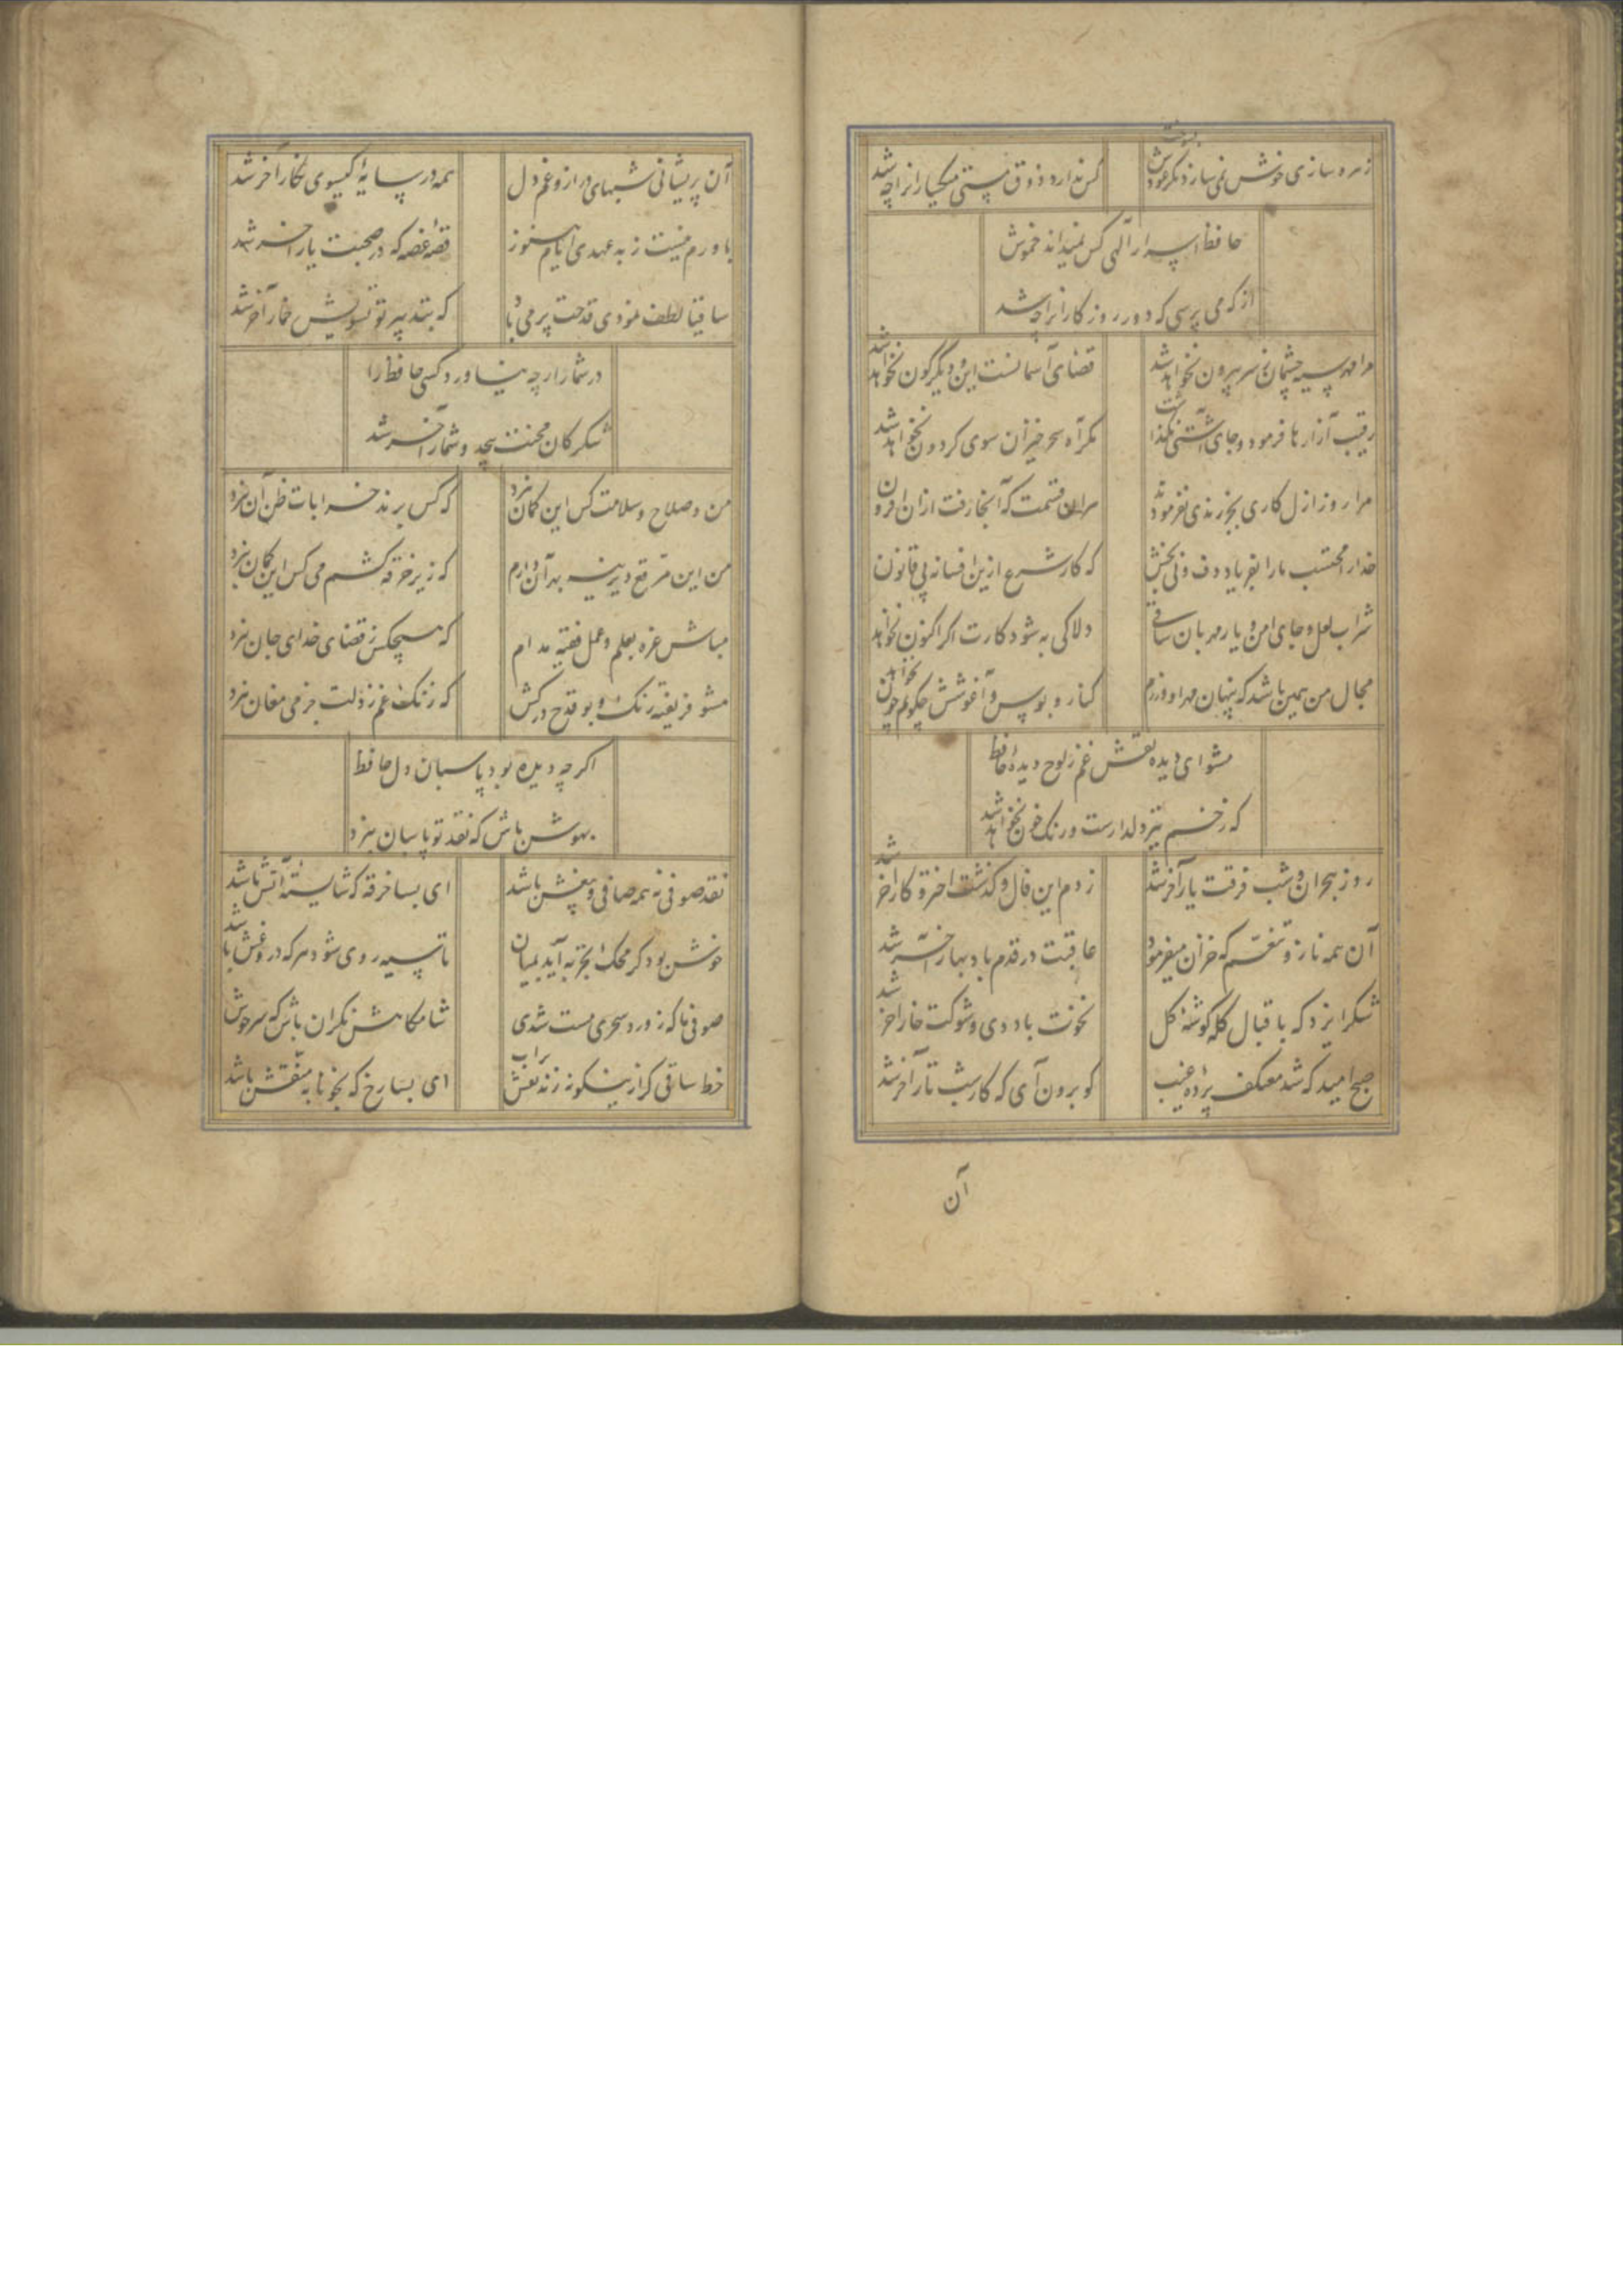 زهره سازی خوش نمی سازد مکر عودش بسوخت
کس ندارد ذوق مستی میکسارانرا چه شد
حافظ اسرار آلهی کس نمیداند خموش
از که می پرسی که دور روزکارانرا چه شد
مرا مهر سیه چشمان ز سر بیرون نخواهد شد
قضای آسمانست این و دیکرکون نخواهد شد
رقیب آزارها فرمود و جای آشتی نکذاشت
مکر آه سحرخیزان سوی کردون نخواهد شد
مرا روز ازل کاری بجز رندی نفرمودند
هران قسمت که آنجا رفت ازان افزون
خدارا محتسب مارا بفریاد دف و نی بخش
که کار شرع ازین افسانه بی قانون
شراب لعل و جای امن و یار مهربان ساقی
دلا کی به شود کارت اکر اکنون نخواهد
مجال من همین باشد که پنهان مهر او ورزم
کنار و بوس و آغوشش چکویم چون نخواهد
مشو ای دیده نقش غم ز لوح دیدۀ حافظ
که زخم تیز دلدارست و رنک خون نخواهد شد
روز هجران و شب فرقت یار آخر شد
زدم این فال و کذشت اختر و کار آخر شد
آن همه ناز و تنعم که خزان میفرمود
عاقبت در قدم باد بهار آخر شد
شکر ایزد که باقبال کله کوشه کل
نخوت باد دی و شوکت خار آخر شد
صبح امید که شد معتکف پردۀ غیب
کو برون آی که کار شب تار آخر شد
آن
آن پریشانی شبهای دراز و غم دل
همه در سایۀ کیسوی نکار آخر شد
باورم نیست ز بد عهدی ایام هنوز
قصۀ غصه که در صحبت یار آخر شد
ساقیا لطف نمودی قدحت پر می باد
که بتدبیر تو تشویش خمار آخر شد
در شمار ارچه نیاورد کسی حافظ را
شکر کان محنت بیحد و شمار آخر شد
من و صلاح و سلامت کس این کمان نبرد
که کس برند خرابات ظن آن نبرد
من این مرقع دیرینه بهر آن دارم
که زیر خرقه کشم می کس این کمان نبرد
مباش غره بعلم و عمل فقیه مدام
که هیچکس ز قضای خدای جان نبرد
مشو فریفته رنک و بو قدح درکش
که زنک غم ز دلت جز می مغان نبرد
اکرچه دیده بود پاسبان دل حافظ
بهوش باش که نقد تو پاسبان نبرد
نقد صوفی نه همه صافی و بیغش باشد
ای بسا خرقه که شایستۀ آتش باشد
خوش بود کر محک تجربه آید بمیان
تا سیه روی شود هر که درو غش باشد
صوفی ما که ز ورد سحری مست شدی
شامکاهش نکران باش که سرخوش
خط ساقی کر ازینکونه زند نقش براب
ای بسا رخ که بخونابه منقش باشد